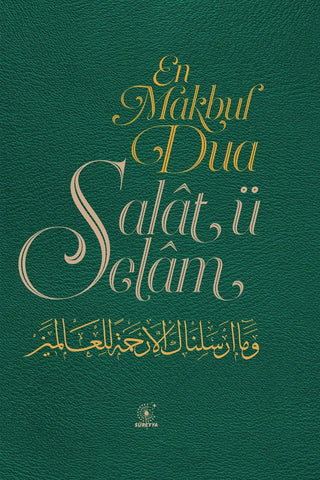 En
Makbul
Dua
Salât ü
Selâm
وما أرسلناك إلا رحمة للعالمين
SÜREYYA